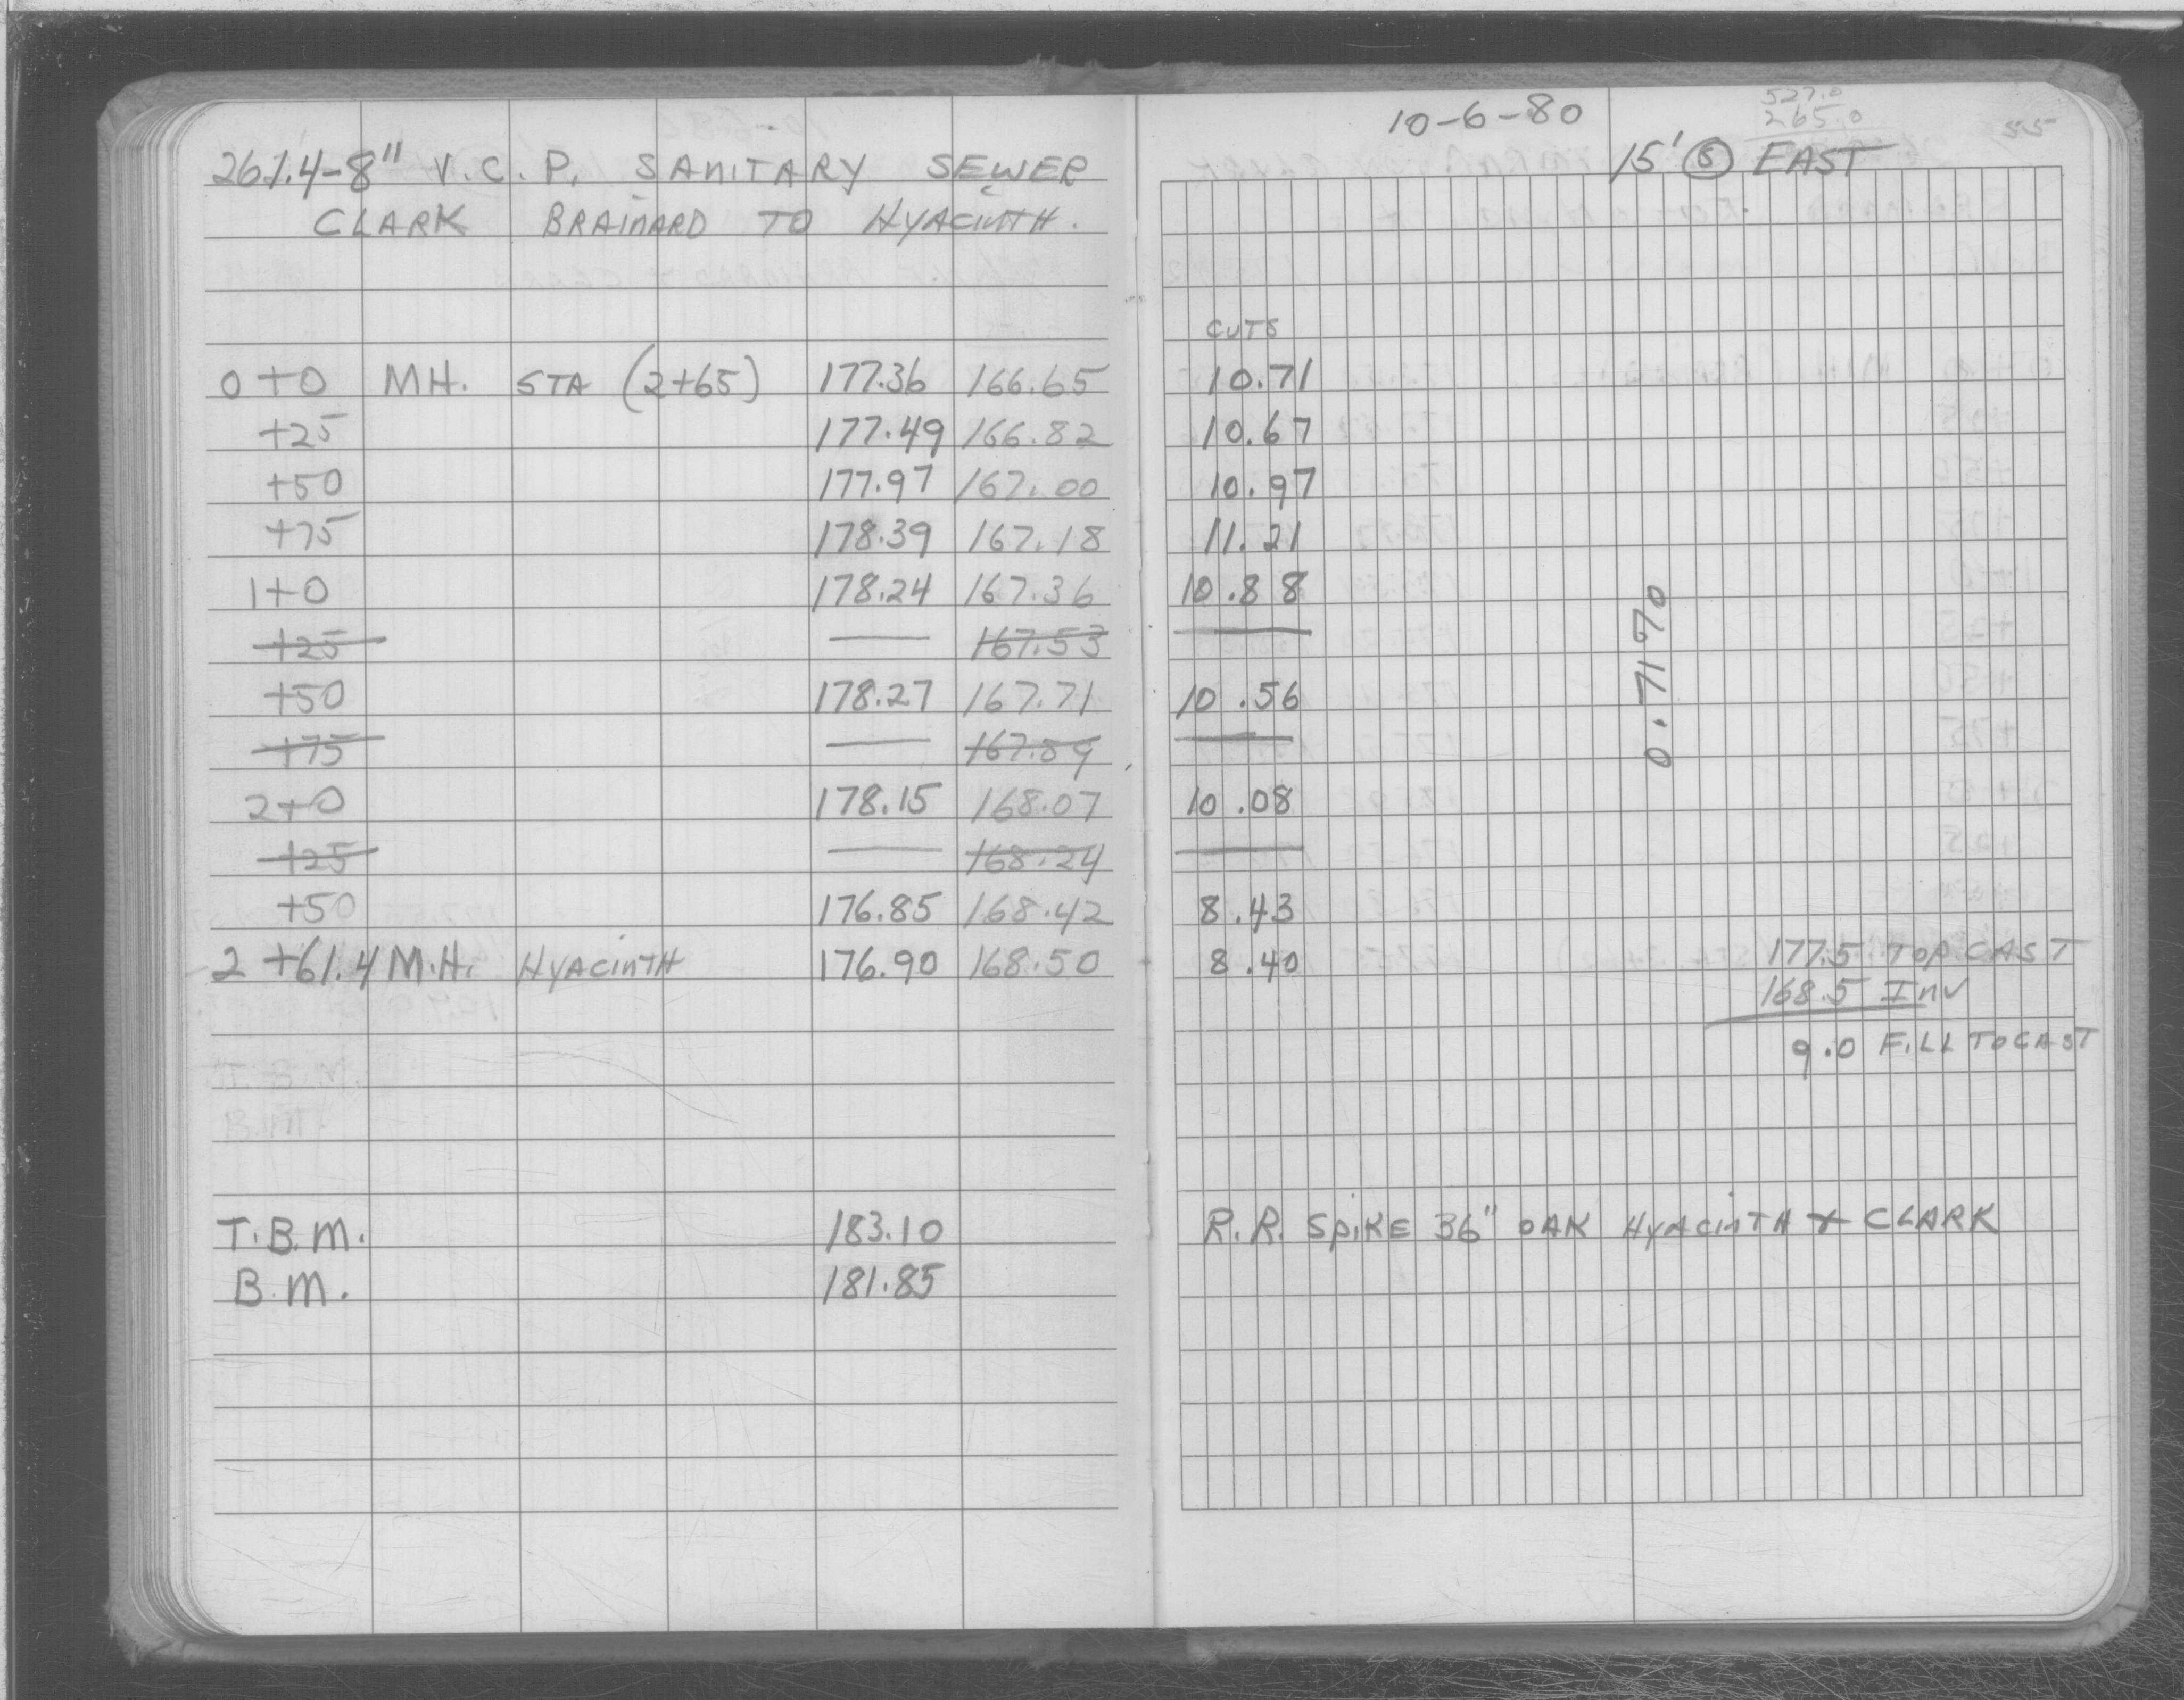 261.4-8" V.C.P. SANITARY SEWER
CLARK BRAINARD TO HYACINTH.
0+0 MH. STA (2+65) 177.36 166.65
+25 177.49 166.82
+50 177.97 167.00
+75 178.39 167.18
1+0 178.24 167.36
+25 — 167.53
+50 178.27 167.71
+75 — 167.89
2+0 178.15 168.07
+25 — 168.24
+50 176.85 168.42
2+61.4 M.H. HYACINTH 176.90 168.50
T.B.M.
B.M.
T.B.M. 183.10
B.M. 181.85
10-6-80
527.0
265.0
55
15' Ⓢ EAST
CUTS
10.71
10.67
10.97
11.21
10.88
—
10.56
—
10.08
—
8.43
8.40
0.7170
177.5 TOP CAST
168.5 Inv
9.0 FILL TO CAST
R.R. SPIKE 36" OAK HYACINTH + CLARK